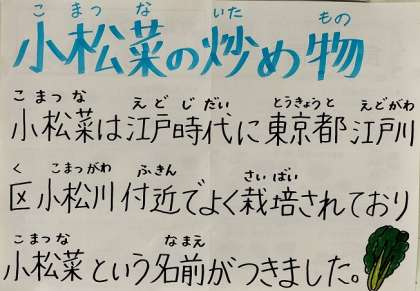 こまつな いた もの
小松菜の炒め物
こまつな えどじだい とうきょうと えどがわ
小松菜は江戸時代に東京都江戸川
く こまつがわ ふきん さいばい
区小松川付近でよく栽培されており
こまつな なまえ
小松菜という名前がつきました。